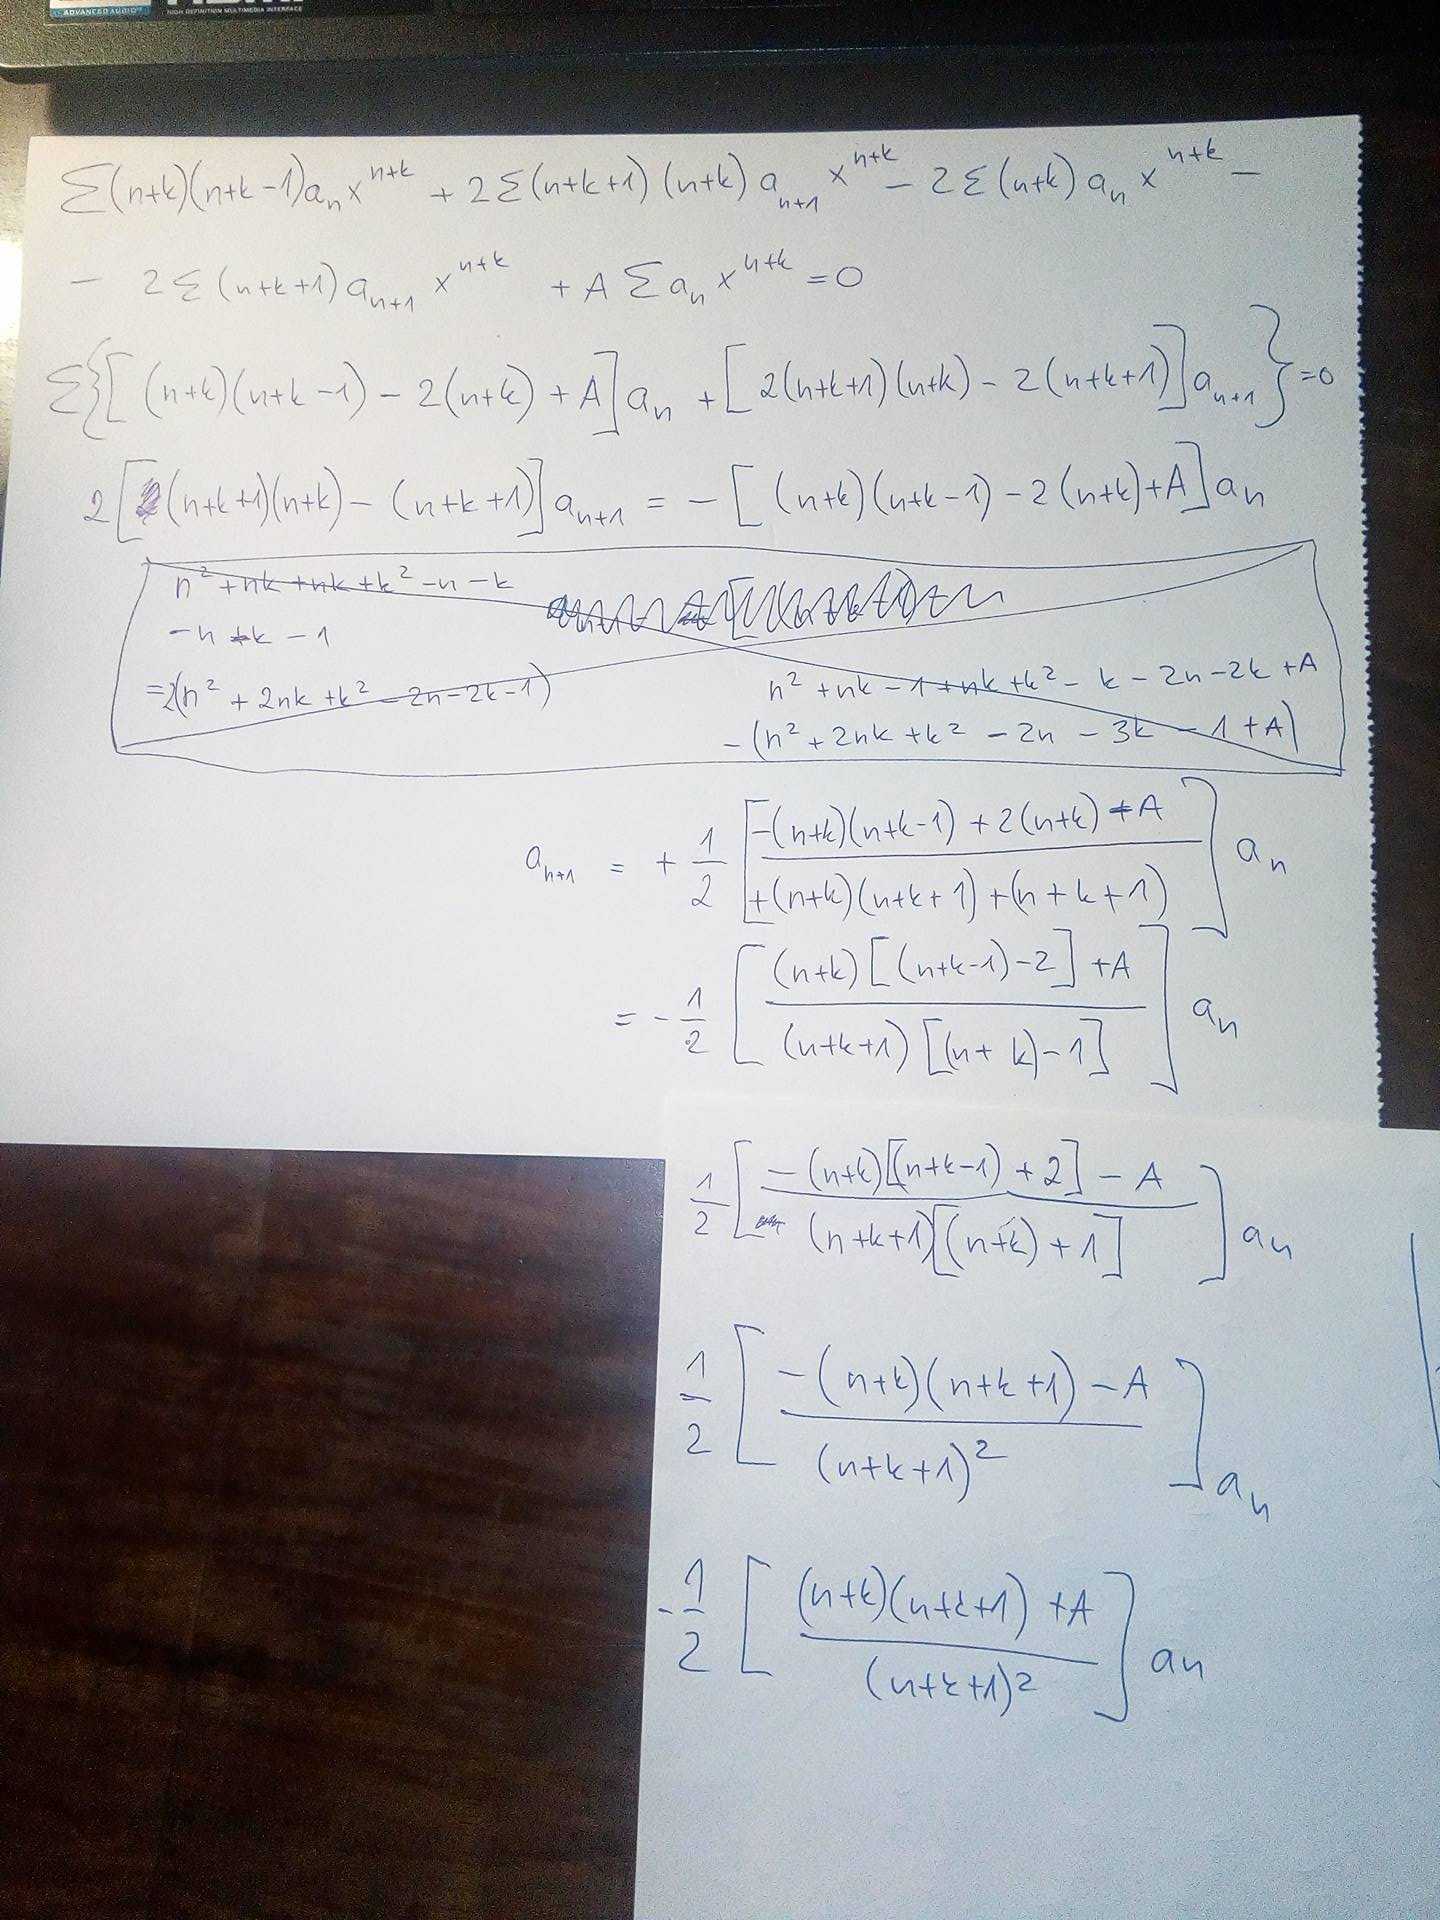 ADVANCED AUDIO
HIGH DEFINITION MULTIMEDIA INTERFACE
Σ(n+k)(n+k-1)aₙx^{n+k} + 2Σ(n+k+1)(n+k)a_{n+1}x^{n+k} - 2Σ(n+k)aₙx^{n+k} -
- 2Σ(n+k+1)a_{n+1}x^{n+k} + AΣaₙx^{n+k} = 0
Σ{[(n+k)(n+k-1) - 2(n+k) + A]aₙ + [2(n+k+1)(n+k) - 2(n+k+1)]a_{n+1}} = 0
2[(n+k+1)(n+k) - (n+k+1)]a_{n+1} = -[(n+k)(n+k-1) - 2(n+k) + A]aₙ
n² + nk + nk + k² - n - k
-n - k - 1
= 2(n² + 2nk + k² - 2n - 2k - 1)
n² + nk - 1 + nk + k² - k - 2n - 2k + A
-(n² + 2nk + k² - 2n - 3k - 1 + A)
a_{n+1} = + 1/2 [(-(n+k)(n+k-1) + 2(n+k) + A) / (+(n+k)(n+k+1) + (n+k+1))] aₙ
= - 1/2 [((n+k)[(n+k-1) - 2] + A) / ((n+k+1)[(n+k) - 1])] aₙ
1/2 [(-(n+k)[(n+k-1) + 2] - A) / ((n+k+1)[(n+k) + 1])] aₙ
1/2 [(-(n+k)(n+k+1) - A) / (n+k+1)²] aₙ
- 1/2 [((n+k)(n+k+1) + A) / (n+k+1)²] aₙ